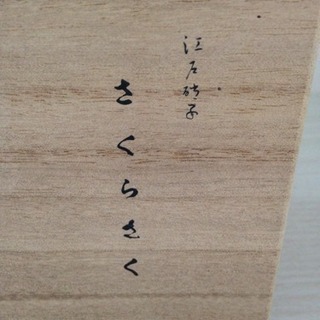 江戸硝子
さくらさく